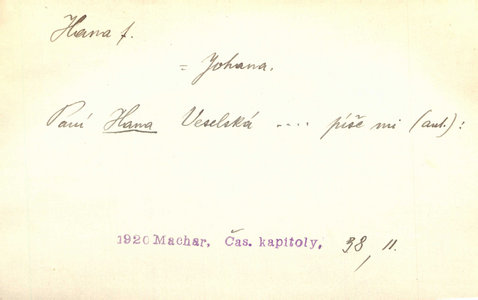 Hana f.
= Johana.
Paní Hana Veselská .... píše mi (aut.):
1920 Machar, Čas. kapitoly, 38, 11.